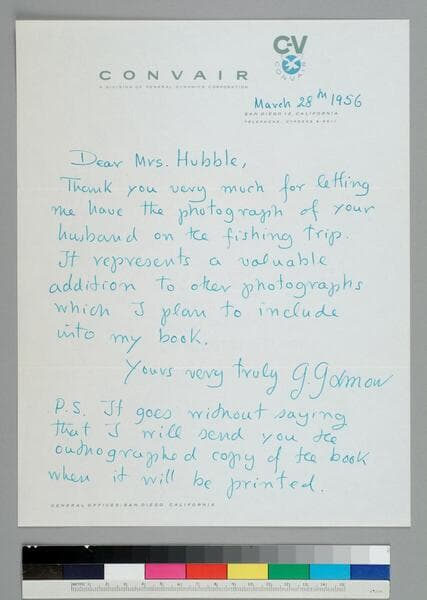 C-V
CONVAIR
CONVAIR
A DIVISION OF GENERAL DYNAMICS CORPORATION
March 28th 1956
SAN DIEGO 12, CALIFORNIA
Dear Mrs. Hubble,
Thank you very much for letting
me have the photograph of your
husband on the fishing trip.
It represents a valuable
addition to other photographs
which I plan to include
into my book.
Yours very truly G. Gamow
P.S. It goes without saying
that I will send you the
outhographed copy of the book
when it will be printed.
GENERAL OFFICES: SAN DIEGO, CALIFORNIA